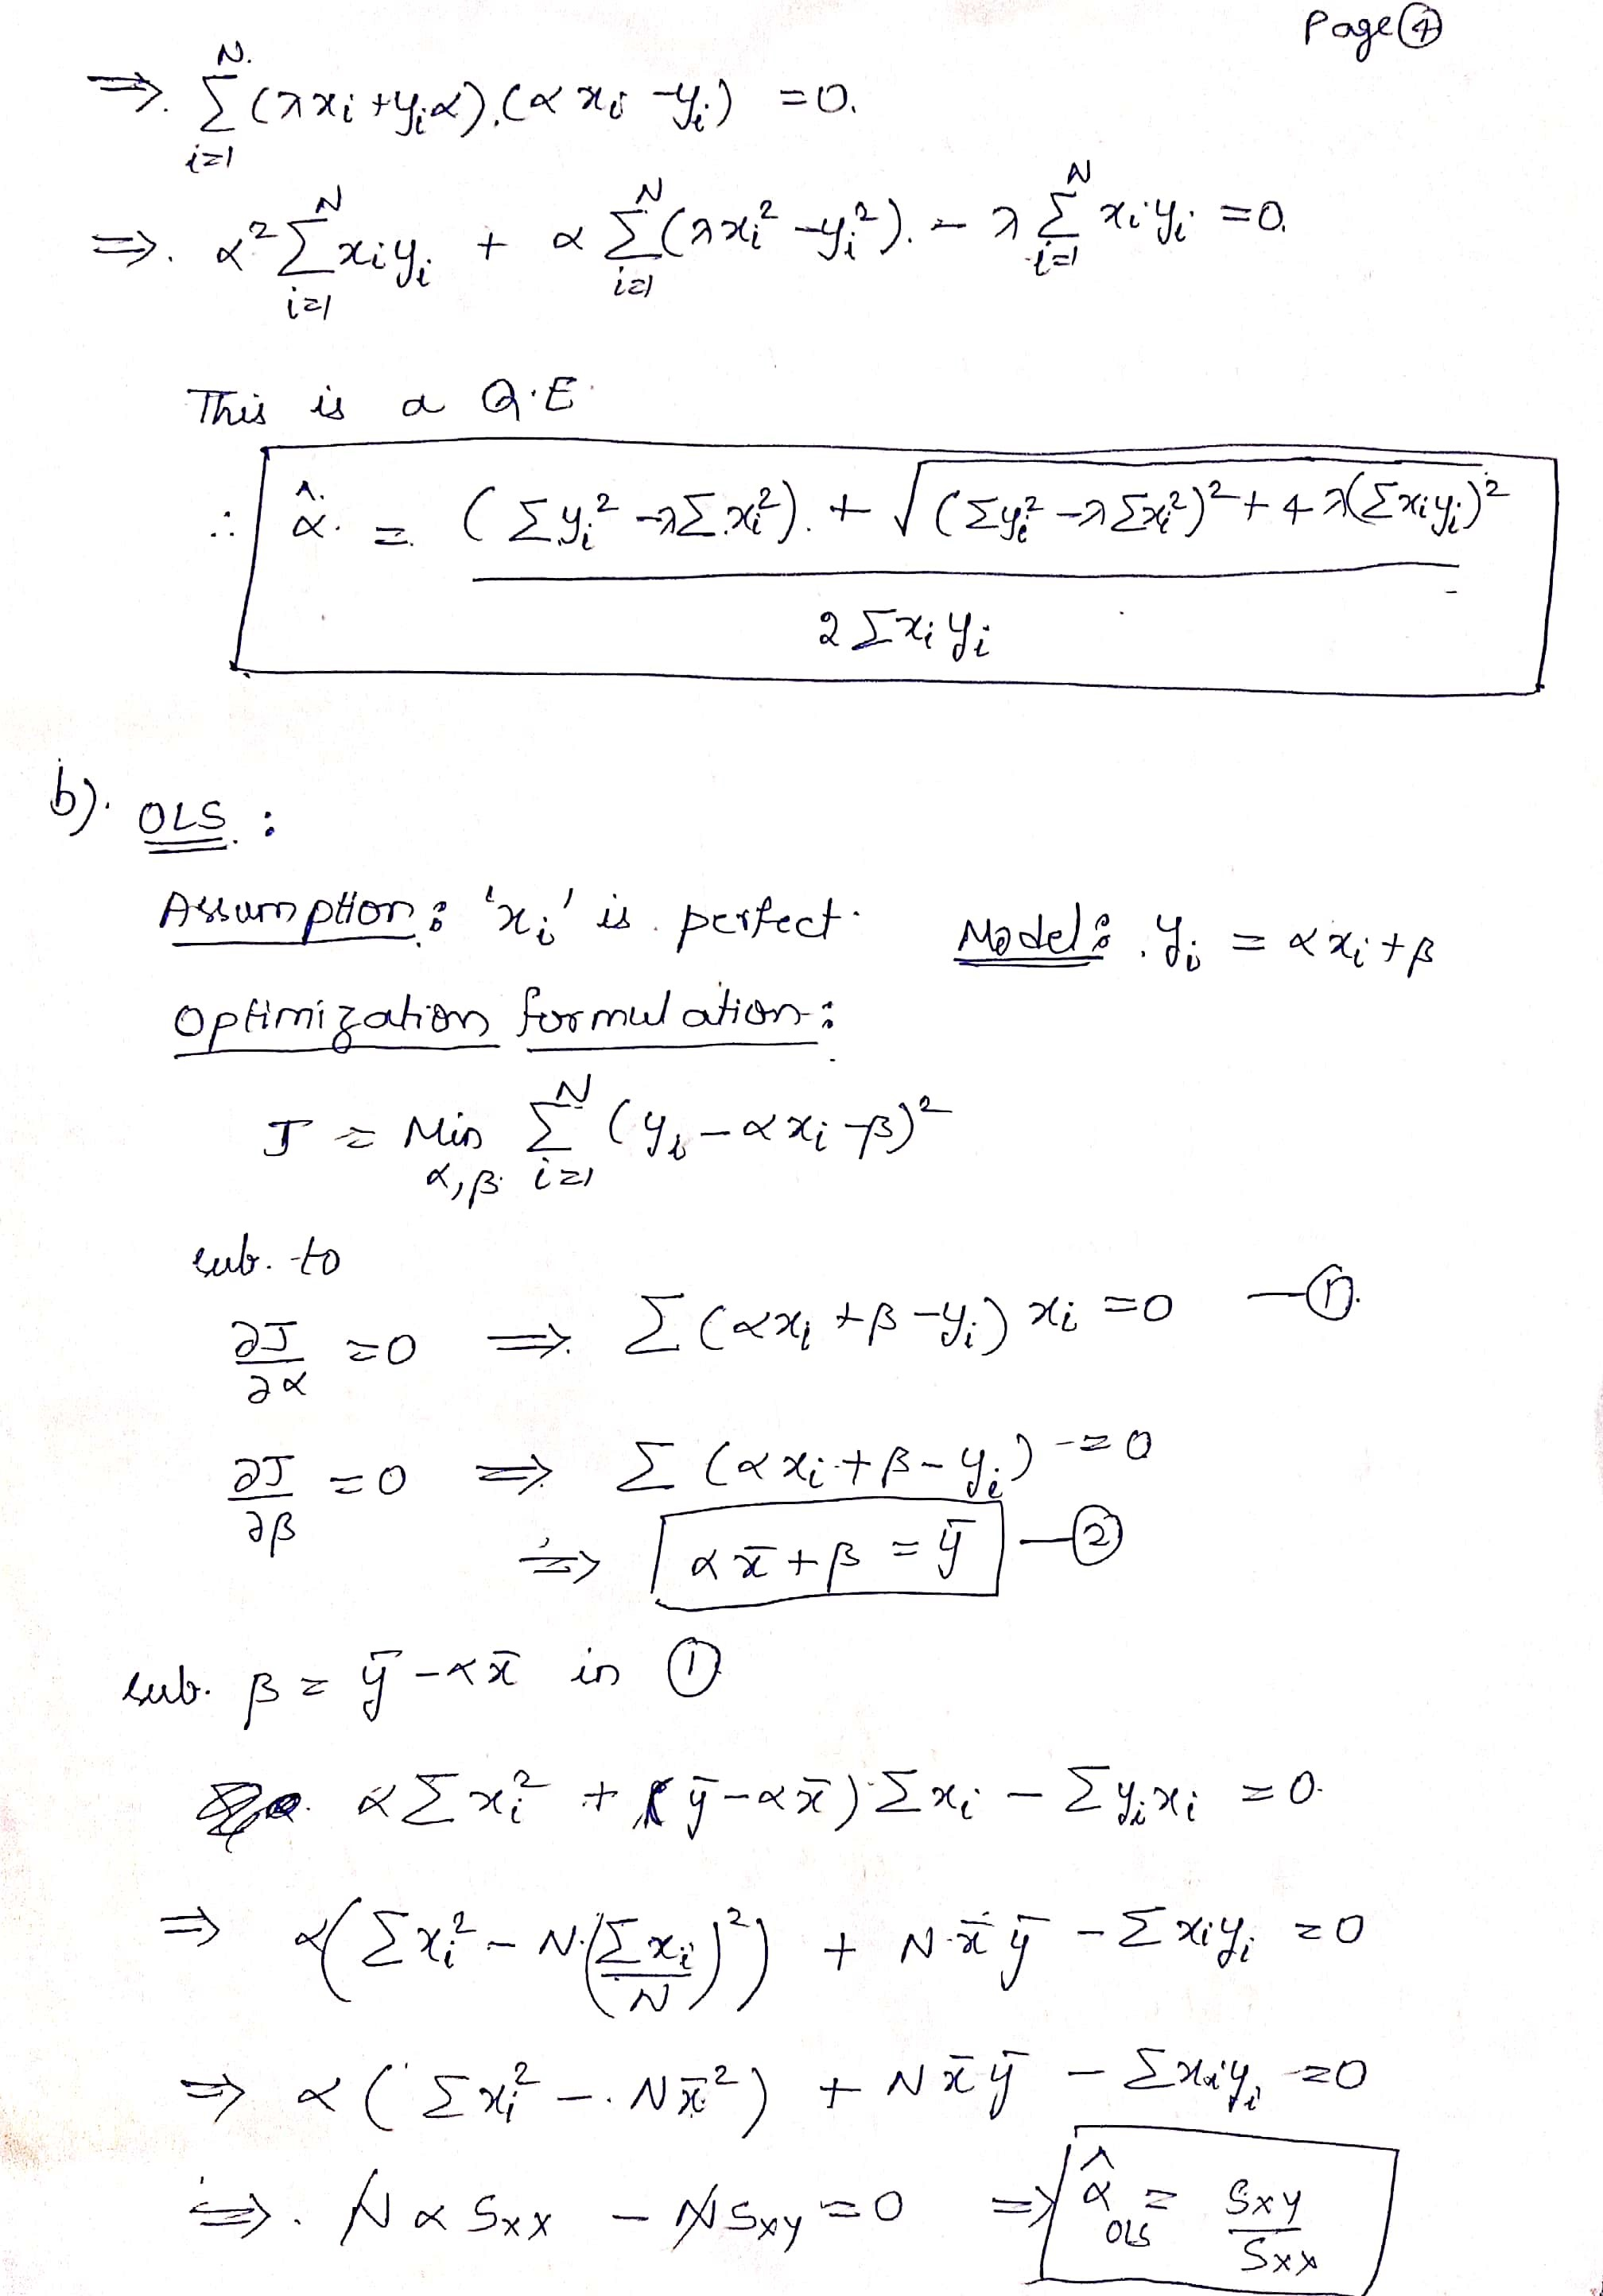 Page ④
⇒. Σ_{i=1}^{N} (λx_i + y_iα).(αx_i − y_i) = 0.
⇒. α² Σ_{i=1}^{N} x_i y_i + α Σ_{i=1}^{N} (λx_i² − y_i²). − λ Σ_{i=1}^{N} x_i y_i = 0.
This is a Q.E.
∴ α̂ = ((Σy_i² − λΣx_i²) + √((Σy_i² − λΣx_i²)² + 4λ(Σx_i y_i)²)) / (2Σx_i y_i)
b). OLS :
Assumption: 'x_i' is perfect. Model: y_i = αx_i + β
Optimization formulation:
J = Min_{α,β} Σ_{i=1}^{N} (y_i − αx_i − β)²
sub. to
∂J/∂α = 0 ⇒ Σ(αx_i + β − y_i) x_i = 0 — ①
∂J/∂β = 0 ⇒ Σ(αx_i + β − y_i) = 0
⇒ αx̄ + β = ȳ — ②
sub. β = ȳ − αx̄ in ①
αΣx_i² + (ȳ − αx̄) Σx_i − Σy_i x_i = 0.
⇒ α(Σx_i² − N.(Σx_i/N)²) + N.x̄ȳ − Σx_i y_i = 0
⇒ α(Σx_i² − Nx̄²) + Nx̄ȳ − Σx_i y_i = 0
⇒. NαSxx − NSxy = 0 ⇒ α̂_OLS = Sxy/Sxx